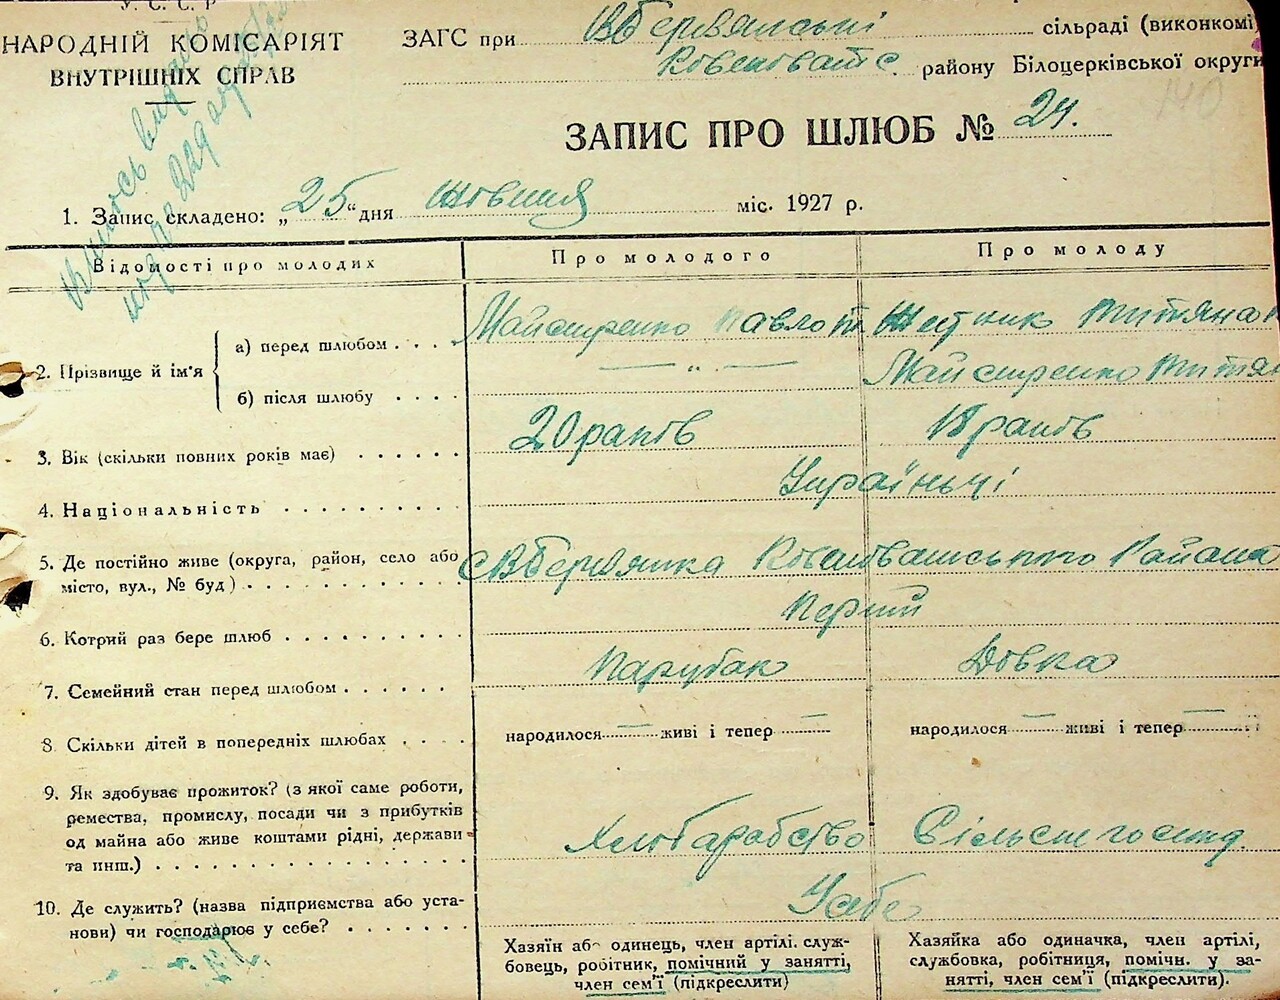 У. С. С. Р
НАРОДНІЙ КОМІСАРІЯТ
ВНУТРІШНІХ СПРАВ
ЗАГС при В Бервянські сільраді (виконкомі
району Білоцерківської округи
140
ЗАПИС ПРО ШЛЮБ № 24.
1. Запис складено: „25“ дня жовтня міс. 1927 р.
Відомості про молодих
Про молодого
Про молоду
2. Прізвище й ім'я
а) перед шлюбом . . . .
Майстренко Павло
Титяна
б) після шлюбу . . . .
— „ —
Майстренко Титян
3. Вік (скільки повних років має) . . . . . .
20 раків
18 раків
4. Національність . . . . . . . . . .
Українці
5. Де постійно живе (округа, район, село або
місто, вул., № буд) . . . . . . . . . . .
с В Бервянка Району
6. Котрий раз бере шлюб . . . . . . . . .
Перший
7. Семейний стан перед шлюбом . . . . . . .
Парубак
Дівка
8. Скільки дітей в попередніх шлюбах . . . .
народилося — живі і тепер —
народилося — живі і тепер —
9. Як здобуває прожиток? (з якої саме роботи,
ремества, промислу, посади чи з прибутків
од майна або живе коштами рідні, держави
та инш.) . . . . . . . . . . . . . . .
Хлібарабство
Сільськ госпд.
10. Де служить? (назва підприємства або уста-
нови) чи господарює у себе? . . . . . . .
У себе
Хазяїн або одинець, член артілі, служ-
бовець, робітник, помічний у занятті,
член сем'ї (підкреслити)
Хазяйка або одиначка, член артілі,
службовка, робітниця, помічн. у за-
нятті, член сем'ї (підкреслити).